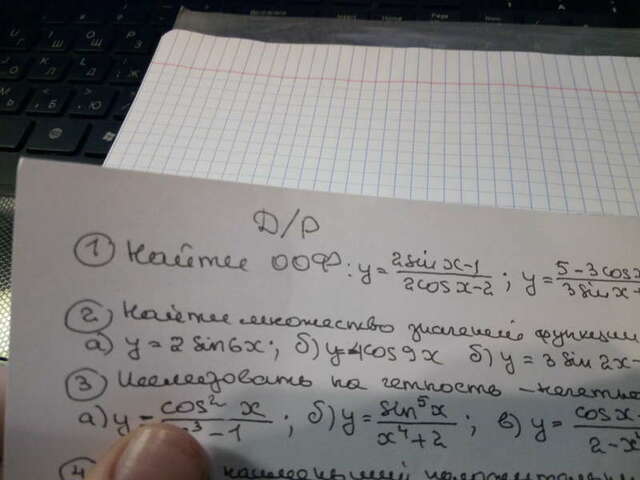 Д/Р
① Найти ООФ: y = (2 sin x - 1)/(2 cos x - 2) ; y = (5 - 3 cos x)/(3 sin x +
② Найти множество значений функции
а) y = 2 sin 6x ; б) y = 4 cos 9x б) y = 3 sin 2x -
③ Исследовать на четность - нечетно
а) y = (cos² x)/(x³ - 1) ; б) y = (sin⁵ x)/(x⁴ + 2) ; в) y = (cos x -)/(2 - x⁴
④ наименьший